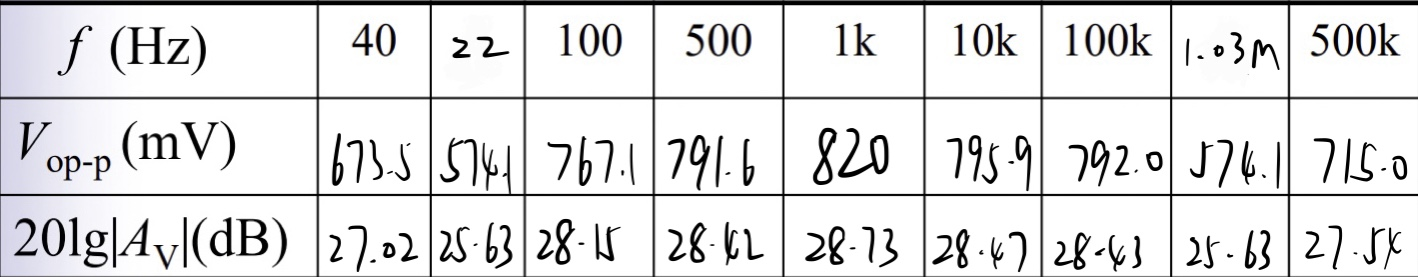 f (Hz) 40 22 100 500 1k 10k 100k 1.03M 500k
Vop-p (mV) 673.5 574.1 767.1 791.6 820 795.9 792.0 574.1 715.0
20lg|AV|(dB) 27.02 25.63 28.15 28.42 28.73 28.47 28.43 25.63 27.54